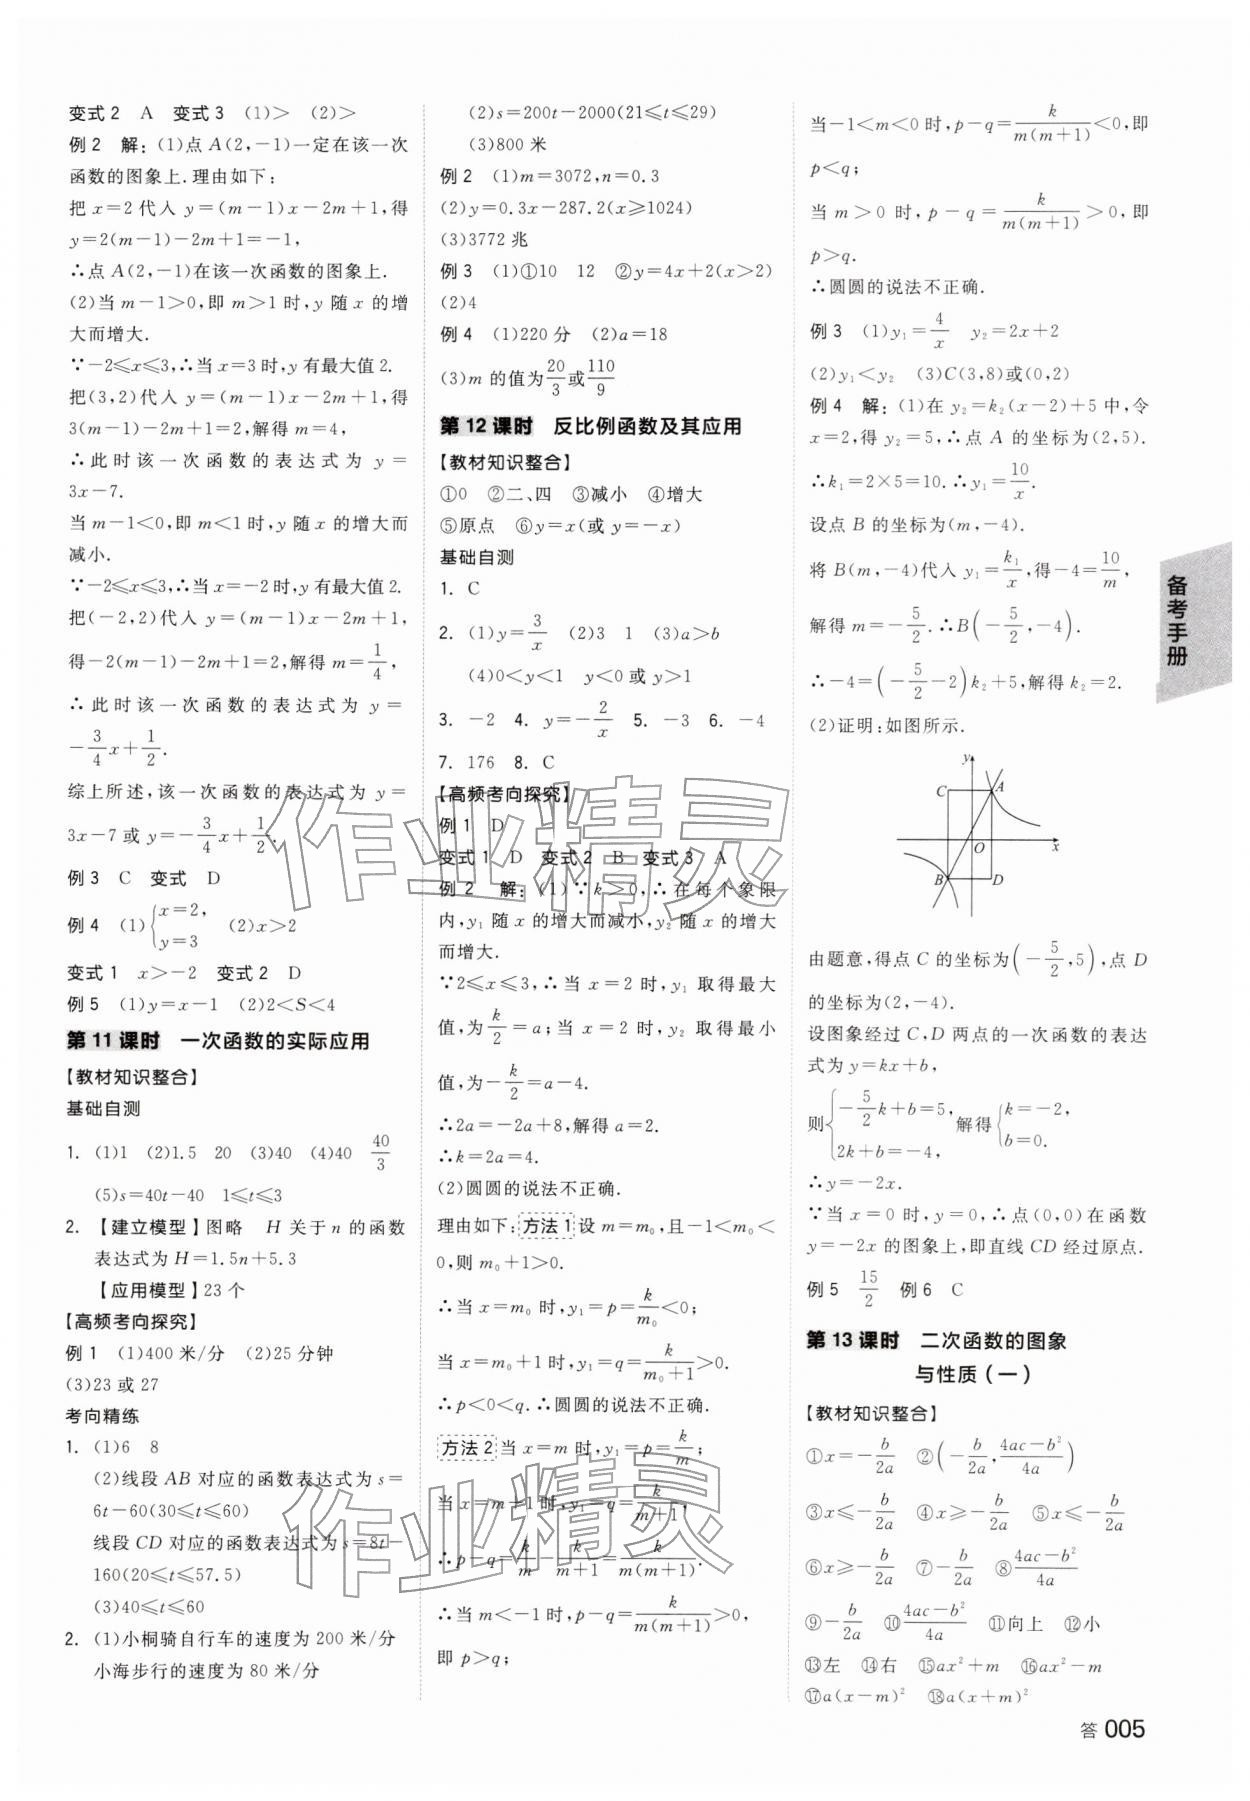 变式2 A 变式3 (1)> (2)>
例2 解:(1)点A(2,-1)一定在该一次
函数的图象上.理由如下:
把x=2代入y=(m-1)x-2m+1,得
y=2(m-1)-2m+1=-1,
∴点A(2,-1)在该一次函数的图象上.
(2)当m-1>0,即m>1时,y随x的增
大而增大.
∵-2≤x≤3,∴当x=3时,y有最大值2.
把(3,2)代入y=(m-1)x-2m+1,得
3(m-1)-2m+1=2,解得m=4,
∴此时该一次函数的表达式为y=
3x-7.
当m-1<0,即m<1时,y随x的增大而
减小.
∵-2≤x≤3,∴当x=-2时,y有最大值2.
把(-2,2)代入y=(m-1)x-2m+1,
得-2(m-1)-2m+1=2,解得m=1/4,
∴此时该一次函数的表达式为y=
-3/4x+1/2.
综上所述,该一次函数的表达式为y=
3x-7或y=-3/4x+1/2.
例3 C 变式 D
例4 (1){x=2, y=3 (2)x>2
变式1 x>-2 变式2 D
例5 (1)y=x-1 (2)2<S<4
第11课时 一次函数的实际应用
【教材知识整合】
基础自测
1. (1)1 (2)1.5 20 (3)40 (4)40 40/3
(5)s=40t-40 1≤t≤3
2. 【建立模型】图略 H关于n的函数
表达式为H=1.5n+5.3
【应用模型】23个
【高频考向探究】
例1 (1)400米/分 (2)25分钟
(3)23或27
考向精练
1. (1)6 8
(2)线段AB对应的函数表达式为s=
6t-60(30≤t≤60)
线段CD对应的函数表达式为s=8t-
160(20≤t≤57.5)
(3)40≤t≤60
2. (1)小桐骑自行车的速度为200米/分
小海步行的速度为80米/分
(2)s=200t-2000(21≤t≤29)
(3)800米
例2 (1)m=3072,n=0.3
(2)y=0.3x-287.2(x≥1024)
(3)3772兆
例3 (1)①10 12 ②y=4x+2(x>2)
(2)4
例4 (1)220分 (2)a=18
(3)m的值为20/3或110/9
第12课时 反比例函数及其应用
【教材知识整合】
①0 ②二、四 ③减小 ④增大
⑤原点 ⑥y=x(或y=-x)
基础自测
1. C
2. (1)y=3/x (2)3 1 (3)a>b
(4)0<y<1 y<0或y>1
3. -2 4. y=-2/x 5. -3 6. -4
7. 176 8. C
【高频考向探究】
例1 D
变式1 D 变式2 B 变式3 A
例2 解:(1)∵k>0,∴在每个象限
内,y₁随x的增大而减小,y₂随x的增大
而增大.
∵2≤x≤3,∴当x=2时,y₁取得最大
值,为k/2=a;当x=2时,y₂取得最小
值,为-k/2=a-4.
∴2a=-2a+8,解得a=2.
∴k=2a=4.
(2)圆圆的说法不正确.
理由如下:方法1 设m=m₀,且-1<m₀<
0,则m₀+1>0.
∴当x=m₀时,y₁=p=k/m₀<0;
当x=m₀+1时,y₁=q=k/(m₀+1)>0.
∴p<0<q.∴圆圆的说法不正确.
方法2 当x=m时,y₁=p=k/m;
当x=m+1时,y₁=q=k/(m+1),
∴p-q=k/m-k/(m+1)=k/(m(m+1)).
∴当m<-1时,p-q=k/(m(m+1))>0,
即p>q;
当-1<m<0时,p-q=k/(m(m+1))<0,即
p<q;
当m>0时,p-q=k/(m(m+1))>0,即
p>q.
∴圆圆的说法不正确.
例3 (1)y₁=4/x y₂=2x+2
(2)y₁<y₂ (3)C(3,8)或(0,2)
例4 解:(1)在y₂=k₂(x-2)+5中,令
x=2,得y₂=5,∴点A的坐标为(2,5).
∴k₁=2×5=10.∴y₁=10/x.
设点B的坐标为(m,-4).
将B(m,-4)代入y₁=k₁/x,得-4=10/m,
解得m=-5/2.∴B(-5/2,-4).
∴-4=(-5/2-2)k₂+5,解得k₂=2.
(2)证明:如图所示.
y
C A
O x
B D
由题意,得点C的坐标为(-5/2,5),点D
的坐标为(2,-4).
设图象经过C,D两点的一次函数的表达
式为y=kx+b,
则{-5/2k+b=5, 2k+b=-4, 解得{k=-2, b=0.
∴y=-2x.
∵当x=0时,y=0,∴点(0,0)在函数
y=-2x的图象上,即直线CD经过原点.
例5 15/2 例6 C
第13课时 二次函数的图象
与性质(一)
【教材知识整合】
①x=-b/2a ②(-b/2a,(4ac-b²)/4a)
③x≤-b/2a ④x≥-b/2a ⑤x≤-b/2a
⑥x≥-b/2a ⑦-b/2a ⑧(4ac-b²)/4a
⑨-b/2a ⑩(4ac-b²)/4a ⑪向上 ⑫小
⑬左 ⑭右 ⑮ax²+m ⑯ax²-m
⑰a(x-m)² ⑱a(x+m)²
备考手册
答 005
作业精灵
作业精灵